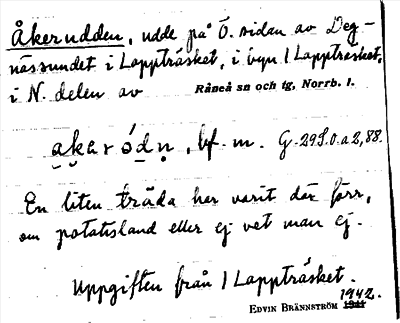 Åkerudden, udde på Ö. sidan av Deg-
nässundet i Lappträsket, i byn 1 Lappträsket,
i N. delen av Råneå sn och tg, Norrb. l.
a̮ka̮r ó̱dṇ, bf. m. G. 29 S. o. a 2, 88.
En liten träda har varit där förr,
om potatisland eller ej vet man ej.
Uppgiften från 1 Lappträsket.
1942.
EDVIN BRÄNNSTRÖM 1941